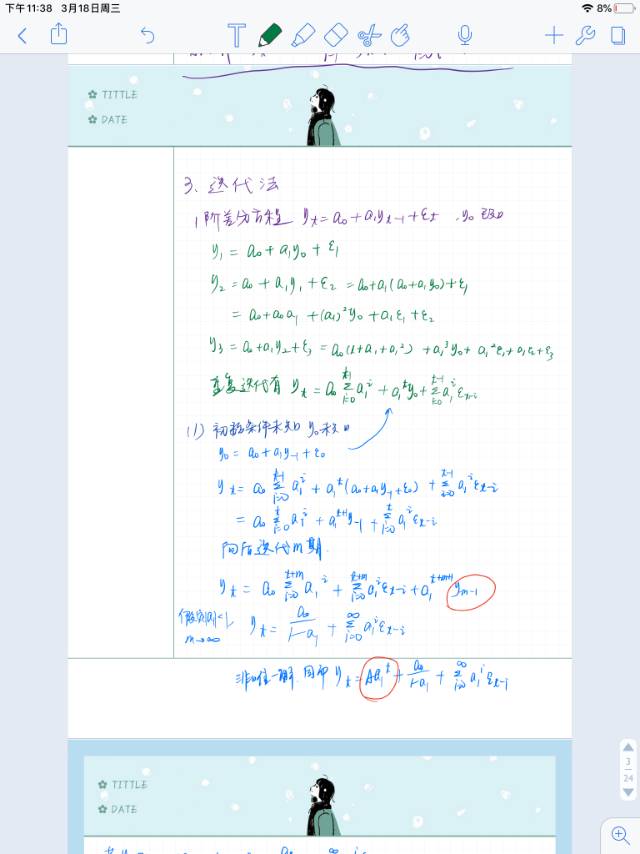 下午11:38 3月18日周三
8%
TITTLE
DATE
3、迭代法
1阶差分方程 yₜ = a₀ + a₁yₜ₋₁ + εₜ , y₀ 已知
y₁ = a₀ + a₁y₀ + ε₁
y₂ = a₀ + a₁y₁ + ε₂ = a₀ + a₁(a₀ + a₁y₀) + ε₁
= a₀ + a₀a₁ + (a₁)²y₀ + a₁ε₁ + ε₂
y₃ = a₀ + a₁y₂ + ε₃ = a₀(1 + a₁ + a₁²) + a₁³y₀ + a₁²ε₁ + a₁ε₂ + ε₃
重复迭代有 yₜ = a₀ Σ_{i=0}^{t-1} a₁ⁱ + a₁ᵗy₀ + Σ_{i=0}^{t-1} a₁ⁱ εₜ₋ᵢ
(1) 初始条件未知 y₀未知
y₀ = a₀ + a₁y₋₁ + ε₀
yₜ = a₀ Σ_{i=0}^{t-1} a₁ⁱ + a₁ᵗ(a₀ + a₁y₋₁ + ε₀) + Σ_{i=0}^{t-1} a₁ⁱ εₜ₋ᵢ
= a₀ Σ_{i=0}^{t} a₁ⁱ + a₁ᵗ⁺¹y₋₁ + Σ_{i=0}^{t} a₁ⁱ εₜ₋ᵢ
向后迭代m期
yₜ = a₀ Σ_{i=0}^{t+m} a₁ⁱ + Σ_{i=0}^{t+m} a₁ⁱ εₜ₋ᵢ + a₁ᵗ⁺ᵐ⁺¹ yₘ₋₁
假定|a₁|<1 yₜ = a₀/(1-a₁) + Σ_{i=0}^{∞} a₁ⁱ εₜ₋ᵢ
m→∞
非唯一解 yₜ = Aa₁ᵗ + a₀/(1-a₁) + Σ_{i=0}^{∞} a₁ⁱ εₜ₋ᵢ
3
24
TITTLE
DATE